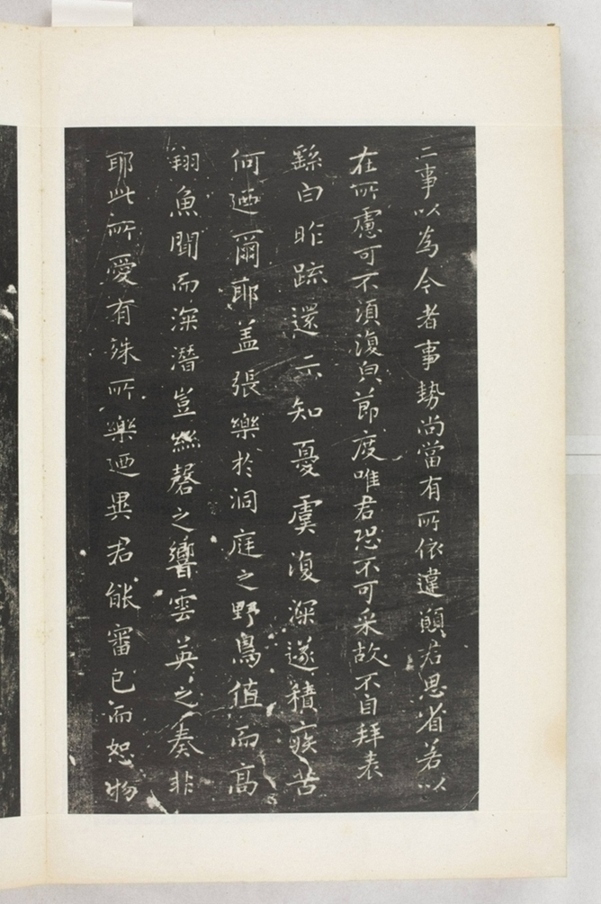 二事以為今者事勢尚當有所依違願君思省若以
在所慮可不須復皃節度唯君恐不可采故不自拜表
繇白昨疏還示知憂虞復深遂積疾苦
何迺爾耶盖張樂於洞庭之野鳥值而高
翔魚聞而深潛豈絲磬之響雲英之奏非
耶此所愛有殊所樂迺異君能審己而恕物